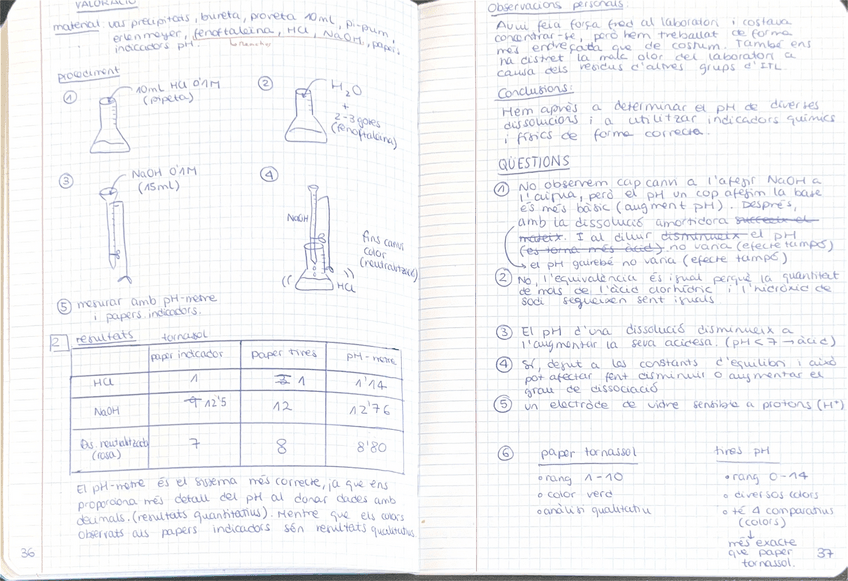 VALORACIÓ
material: vas precipitats, bureta, proveta 10ml, pi-pum,
erlenmeyer, fenoftaleïna, HCl, NaOH, paper,
indicadors pH
procediment
① 10ml HCl 0'1M
(pipeta)
② H2O
+
2-3 gotes
(fenoftaleïna)
③ NaOH 0'1M
(15ml)
④ NaOH
fins canvi
color
(neutralització)
HCl
⑤ mesurar amb pH-metre
i papers indicadors.
2 resultats
tornassol
paper indicador paper tires pH-metre
HCl 1 1 1'14
NaOH 12'5 12 12'76
Dis. neutralitzada
(rosa) 7 8 8'80
El pH-metre és el sistema més correcte, ja que ens
proporciona més detall del pH al donar dades amb
decimals. (resultats quantitatius). Mentre que els colors
observats als papers indicadors són resultats qualitatius
36
Observacions personals:
Avui feia força fred al laboratori i costava
concentrar-te, però hem treballat de forma
més endreçada que de costum. També ens
ha distret la mala olor del laboratori a
causa dels residus d'altres grups d'ITL
Conclusions:
Hem après a determinar el pH de diverses
dissolucions i a utilitzar indicadors químics
i físics de forma correcta.
QÜESTIONS
① No observem cap canvi a l'afegir NaOH a
l'aigua, però el pH un cop afegim la base
és més bàsic (augment pH). Després,
amb la dissolució amortidora succeix el
mateix. I al diluir disminueix el pH
(es torna més àcid). no varia (efecte tampó)
→ el pH gairebé no varia (efecte tampó)
② No, l'equivalència és igual perquè la quantitat
de mols de l'àcid clorhídric i l'hidròxid de
sodi segueixen sent iguals
③ El pH d'una dissolució disminueix a
l'augmentar la seva acidesa. (pH < 7 → àcid)
④ Sí, degut a les constants d'equilibri i això
pot afectar fent disminuir o augmentar el
grau de dissociació
⑤ un elèctrode de vidre sensible a protons (H+)
⑥ paper tornassol
• rang 1-10
• color verd
• anàlisi qualitatiu
tires pH
• rang 0-14
• diversos colors
• té 4 comparatius
(colors)
↓
més exacte
que paper
tornassol.
37